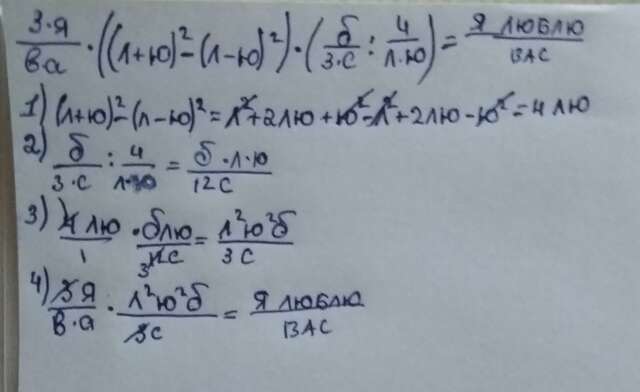 3·я/ва · ((л+ю)²-(л-ю)²) · (б/3·с : 4/л·ю) = Я ЛЮБЛЮ/ВАС
1) (л+ю)²-(л-ю)² = л²+2лю+ю²-л²+2лю-ю² = 4лю
2) б/3·с : 4/л·ю = б·л·ю/12с
3) 4лю/1 · блю/12с = л²ю²б/3с
4) 3я/в·а · л²ю²б/3с = Я ЛЮБЛЮ/ВАС